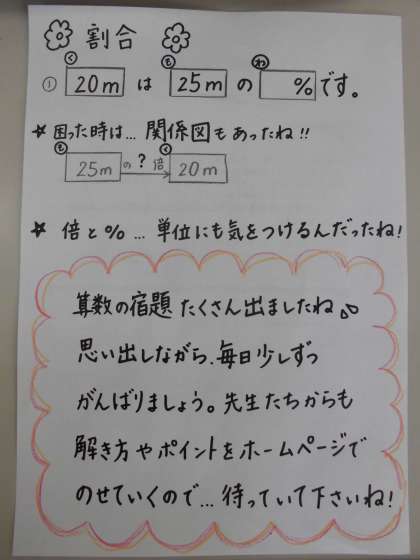 割合
く も わ
① 20m は 25m の %です。
★ 困った時は… 関係図もあったね!!
も く
25m の ? 倍 20m
★ 倍と% … 単位にも気をつけるんだったね!
算数の宿題 たくさん出ましたね♪
思い出しながら、毎日少しずつ
がんばりましょう。先生たちからも
解き方やポイントをホームページで
のせていくので… 待っていて下さいね!